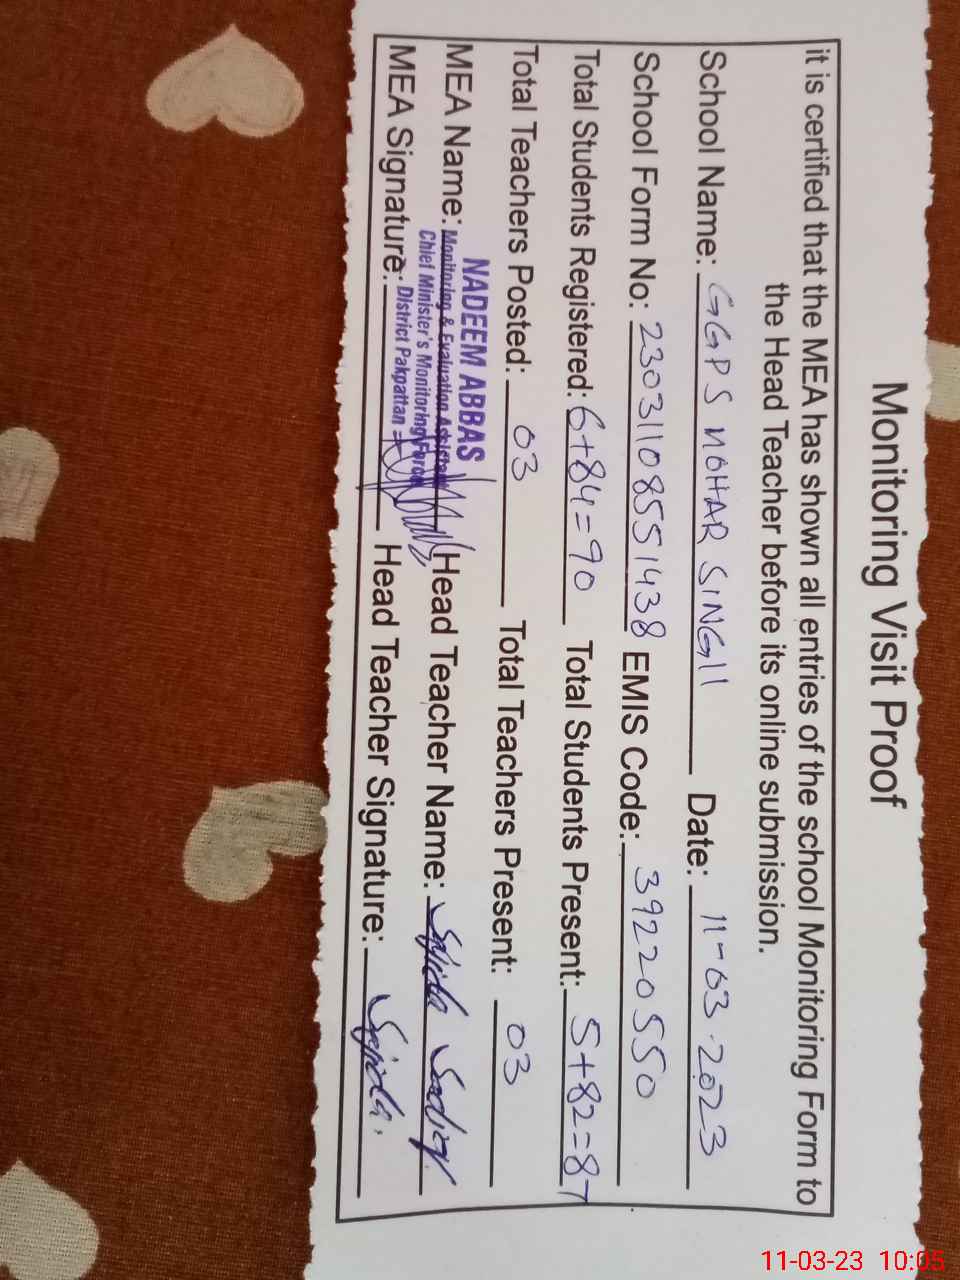 Monitoring Visit Proof
it is certified that the MEA has shown all entries of the school Monitoring Form to
the Head Teacher before its online submission.
School Name: GGPS NOHAR SINGH Date: 11-03-2023
School Form No: 23031108551438 EMIS Code: 39220550
Total Students Registered: 6+84=90 Total Students Present: 5+82=87
Total Teachers Posted: 03 Total Teachers Present: 03
MEA Name: NADEEM ABBAS Head Teacher Name: Sajida Sadiq
Monitoring & Evaluation Assistant
Chief Minister's Monitoring Force
District Pakpattan
MEA Signature: Head Teacher Signature: Sajida.
11-03-23 10:05